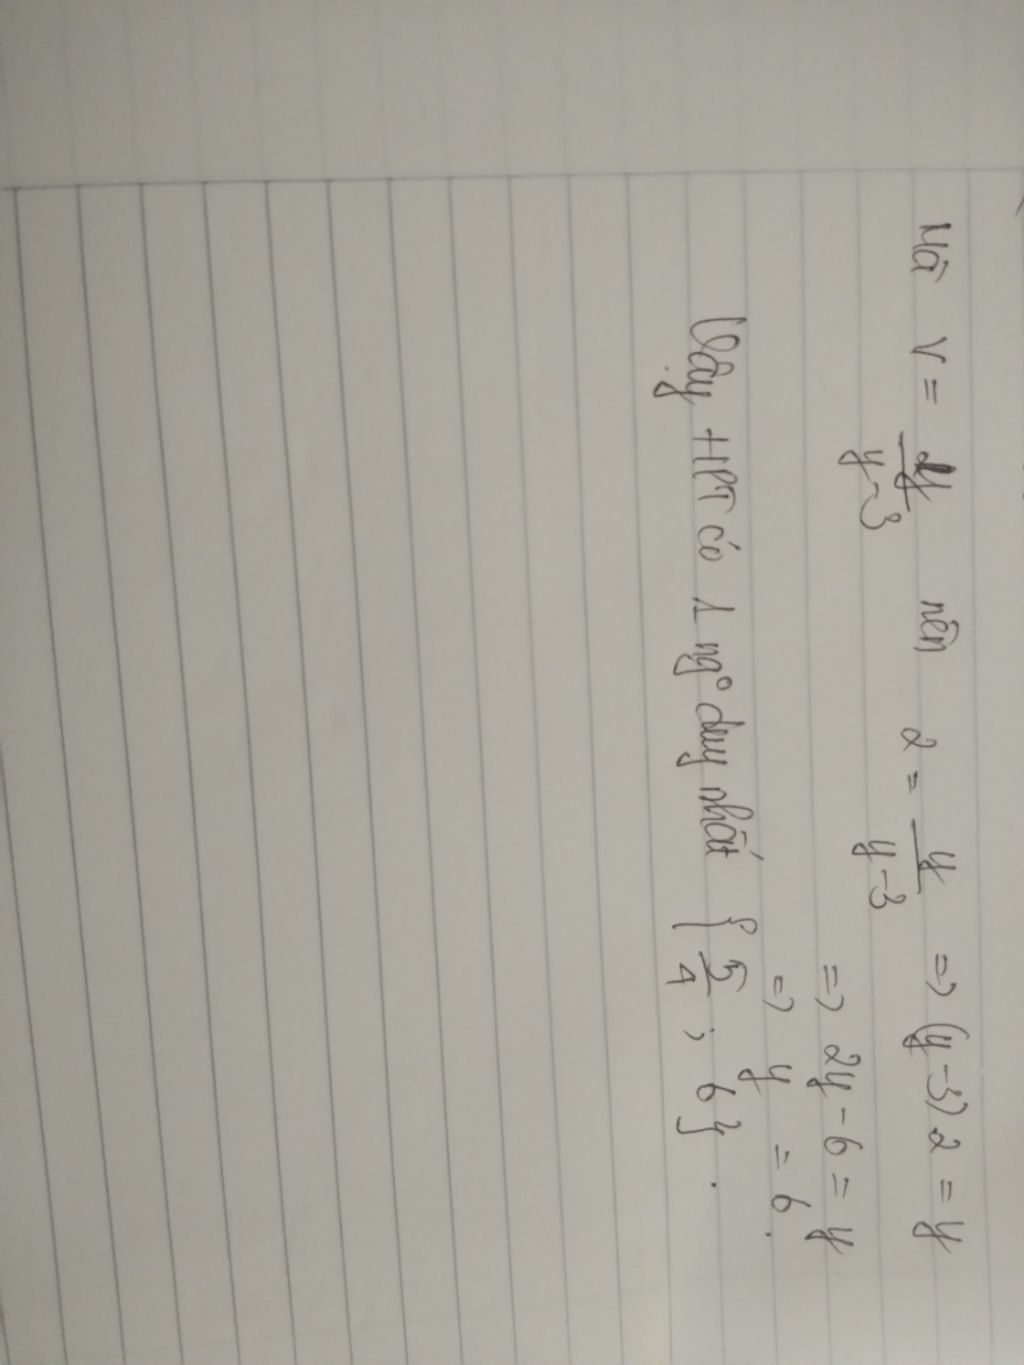 Mà v = y/y-3 nên 2 = y/y-3 => (y-3)2 = y
=> 2y - 6 = y
=> y = 6.
Vậy HPT có 1 ngº duy nhất {5/4; 6}.